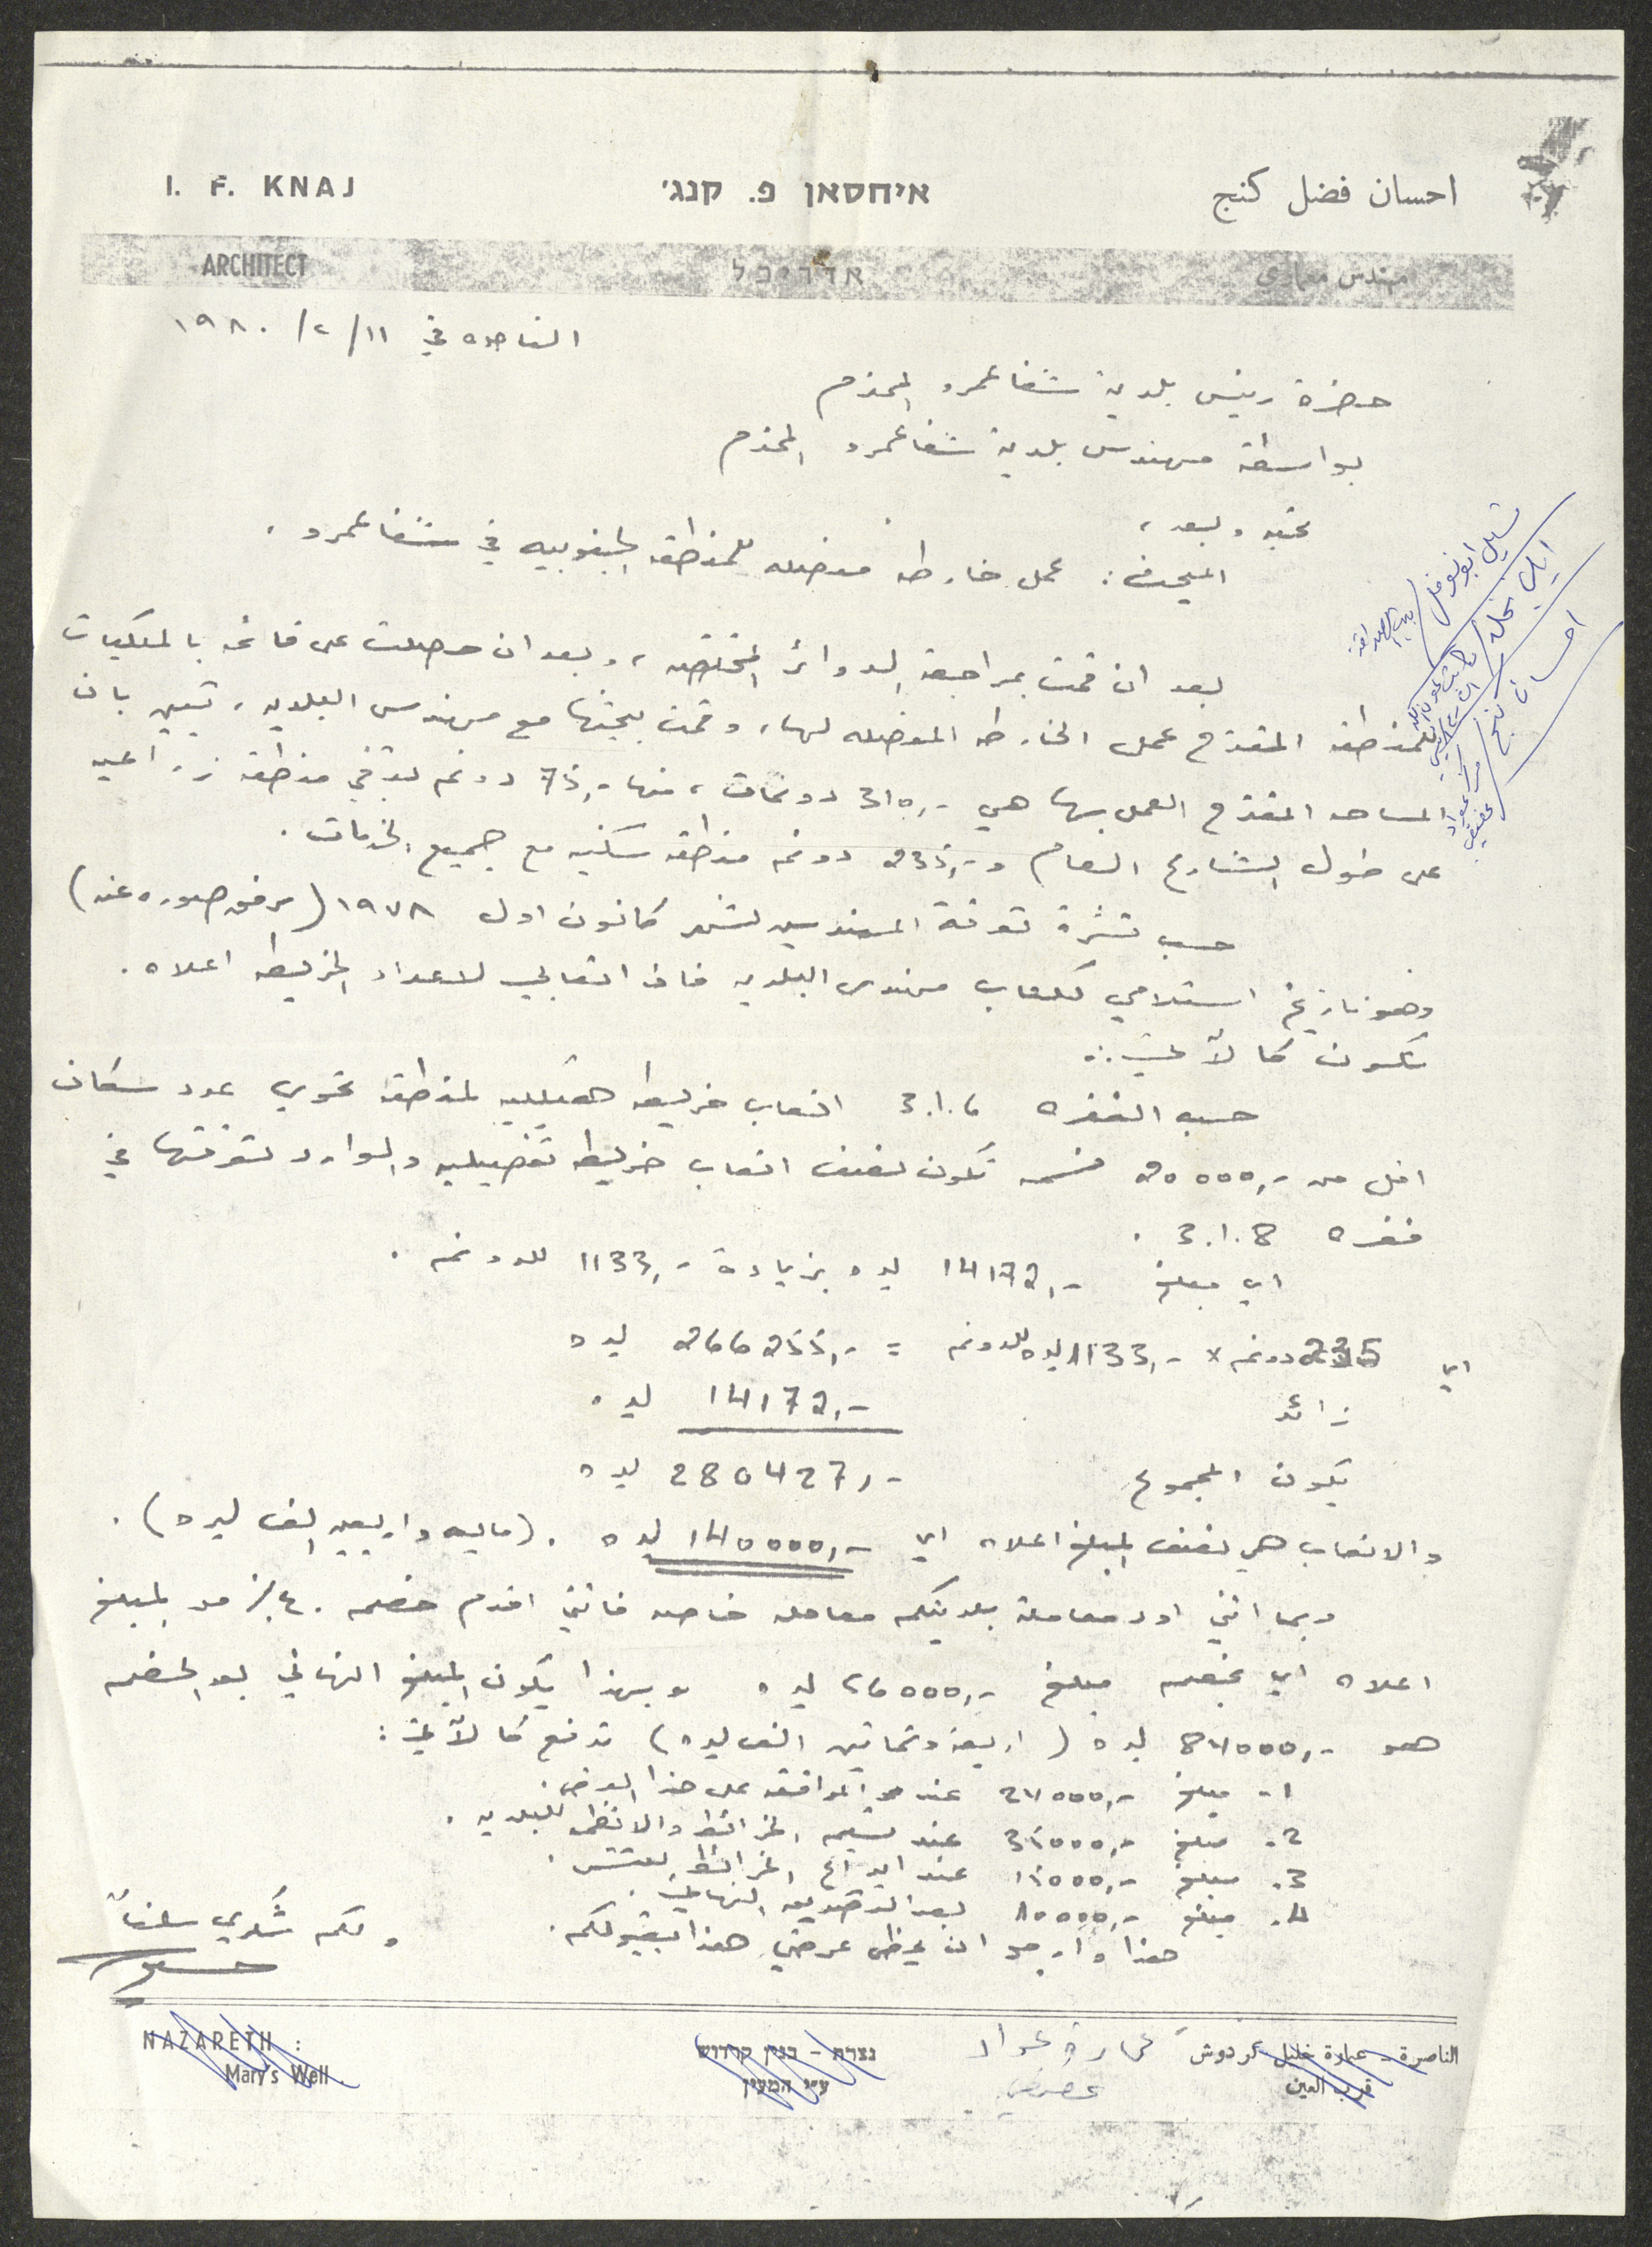 I. F. KNAJ איחסאן פ. קנג׳י احسان فضل كنج
ARCHITECT אדריכל مهندس معماري
الناصره في ١١/٢/١٩٨٠
حضرة رئيس بلدية شفاعمرو المحترم
بواسطة مهندس بلدية شفاعمرو المحترم
تحيه وبعد،
المبحث: عمل خارطه مفصله للمنطقه الجنوبيه في شفاعمرو.
بعد ان قمت بمراجعة الدوائر المختصه، وبعد ان حصلت على قائمه بالملكيات
للمنطقه المقترح عمل الخارطه المفصله لها، وقمت ببحثها مع مهندس البلديه، تبين بان
المساحه المقترح العمل بها هي -,310 دونمات، منها -,75 دونم تبقى منطقه زراعيه
على طول الشارع العام و -,235 دونم منطقه سكنيه مع جميع الخدمات.
حسب نشرة تعرفة المهندسين لشهر كانون اول ١٩٧٨ (مرفق صوره عنه)
وهو تاريخ استلامي لكتاب مهندس البلديه فان اتعابي لاعداد الخريطه اعلاه.
تكون كالآتي:
حسب الفقره 3.1.6 اتعاب خريطه هيكليه لمنطقه تحوي عدد سكان
اقل من -,20000 نسمه تكون نصف اتعاب خريطه تفصيليه والوارد تعرفتها في
فقره 3.1.8.
اي مبلغ -,14172 ليره بزيادة -,1133 للدونم.
اي 235 دونم x -,1133 ليره للدونم = -,266255 ليره
زائد -,14172 ليره
يكون المجموع -,280427 ليره
والاتعاب هي نصف المبلغ اعلاه اي -,140000 ليره. (مايه واربعين الف ليره).
وبما انني اود معاملة بلديتكم معامله خاصه فانني اقدم خصم ٤٠٪ من المبلغ
اعلاه اي بخصم مبلغ -,56000 ليره وبهذا يكون المبلغ النهائي بعد الخصم
هو -,84000 ليره (اربعة وثمانين الف ليره) تدفع كالآتي:
1. مبلغ -,24000 عند الموافقه على هذا العرض.
2. مبلغ -,35000 عند تسليم الخرائط والانظمه للبلديه.
3. مبلغ -,15000 عند ايداع الخرائط
4. مبلغ -,10000 بعد التصديق النهائي.
هذا وارجو ان يحظى عرضي هذا بقبولكم. ولكم شكري سلفاً
احسان كنج
NAZARETH : נצרת - בנין קרדוש عمارة عواد الناصرة - عمارة خليل كردوش
Mary's Well. ע״י המעין قرب العين